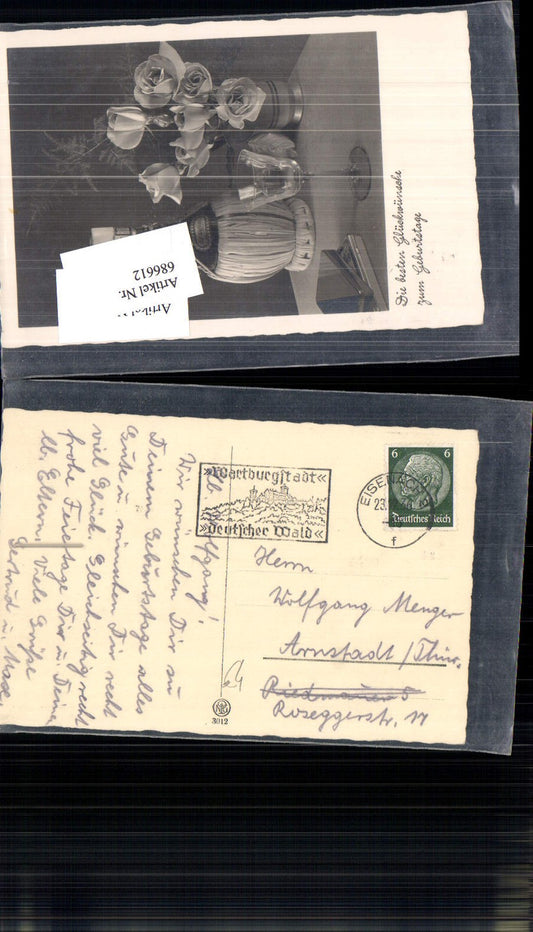 Die besten Glückwünsche
zum Geburtstage
Artikel Nr.
686612
Artikel Nr.
»Wartburgstadt«
»Deutscher Wald«
EISENACH
23.
f
6 6
Deutsches Reich
Lb. Wolfgang!
Wir wünschen Dir zu
Deinem Geburtstage alles
Gute u. wünschen Dir recht
viel Glück. Gleichzeitig recht
frohe Feiertage Dir u. Deine
lb. Eltern. Viele Grüße
Gertrud u. Max.
Herrn
Wolfgang Menger
Arnstadt / Thür.
Riedmauer 5
Roseggerstr. 17
64
3012